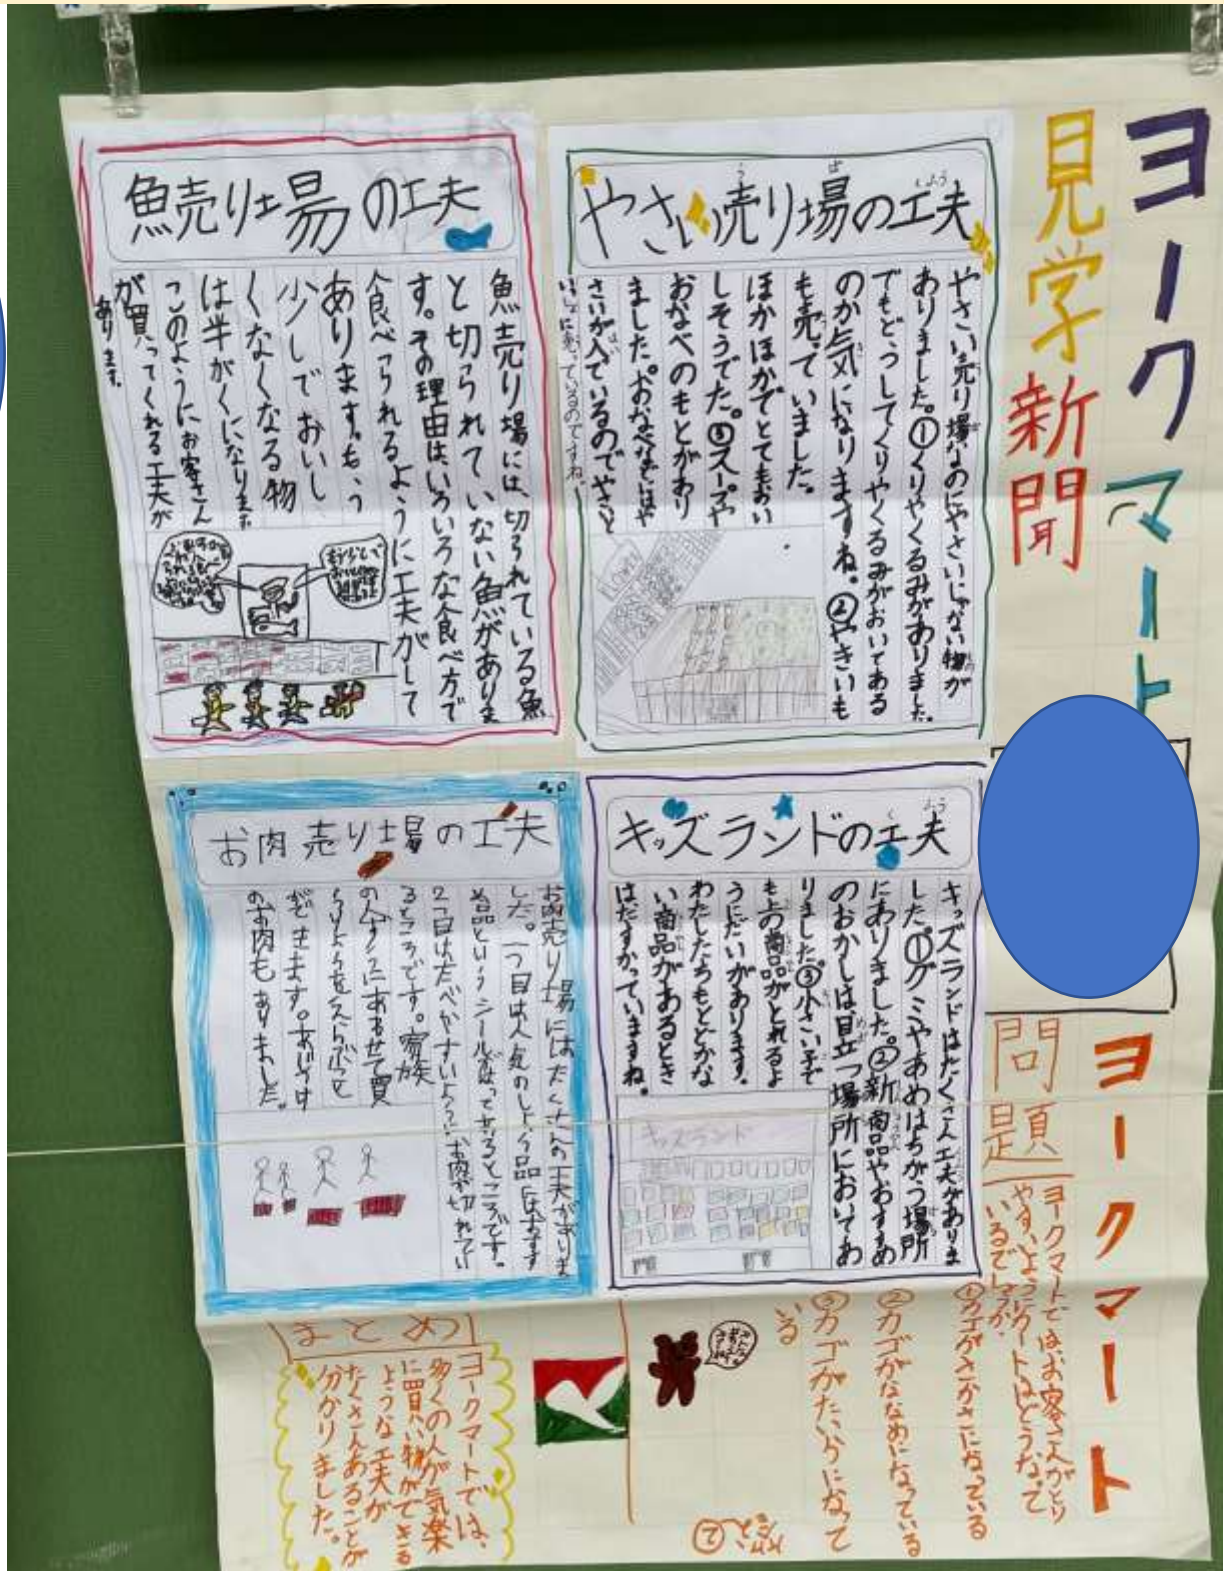 ヨークマート
見学新聞
やさい売り場の工夫
やさい売り場なのにやさいじゃない物が
ありました。①くりやくるみがありました。
でもどうしてくりやくるみがおいてある
のか気になりますね。②やきいも
も売っていました。
ほかほかでとてもおい
しそうでた。③スープや
おなべのもとがあり
ました。おなべなどはや
さいが入ているのでやさいと
いっしょに売っているのですね。
魚売り場の工夫
魚売り場には、切られている魚
と切られていない魚がありま
す。その理由は、いろいろな食べ方で
食べられるように工夫がして
あります。もう
少しでおいし
くなくなる物
は半がくになります
このようにお客さん
が買ってくれる工夫が
あります。
キッズランドの工夫
キッズランドはたくさん工夫がありま
した。①グミやあめはちがう場所
にありました。②新商品やおすすめ
のおかしは目立つ場所においてあ
りました。③小さい子で
も上の商品がとれるよ
うにだいがあります。
わたしたちもとどかな
い商品があるとき
はたすかっていますね。
キッズランド
お肉売り場の工夫
お肉売り場にはたくさんの工夫がありま
した。一つ目は人気のしょう品にはおすす
め品というシールがはってあるところです。
2つ目はたべやすいようにお肉が切れてい
るところです。家族
の人ずうにあわせて買
うりょうをえらぶこと
ができます。あじつけ
のお肉もありました。
ヨークマート
問題
ヨークマートではお客さんがとり
やすいようにカートはどうなって
いるでしょうか。
①カゴがさかさになっている
②カゴがななめになっている
③カゴがたいらになって
いる
答え②
まとめ
ヨークマートでは、
多くの人が気楽
に買い物ができる
ような工夫が
たくさんあることが
分かりました。